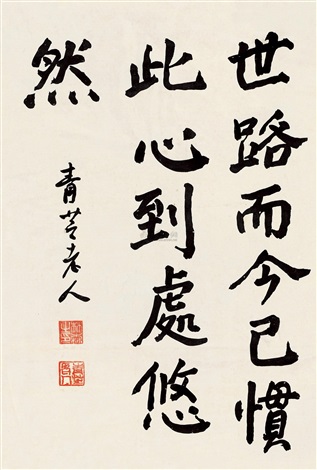 世路而今已慣
此心到處悠
然
青芸老人